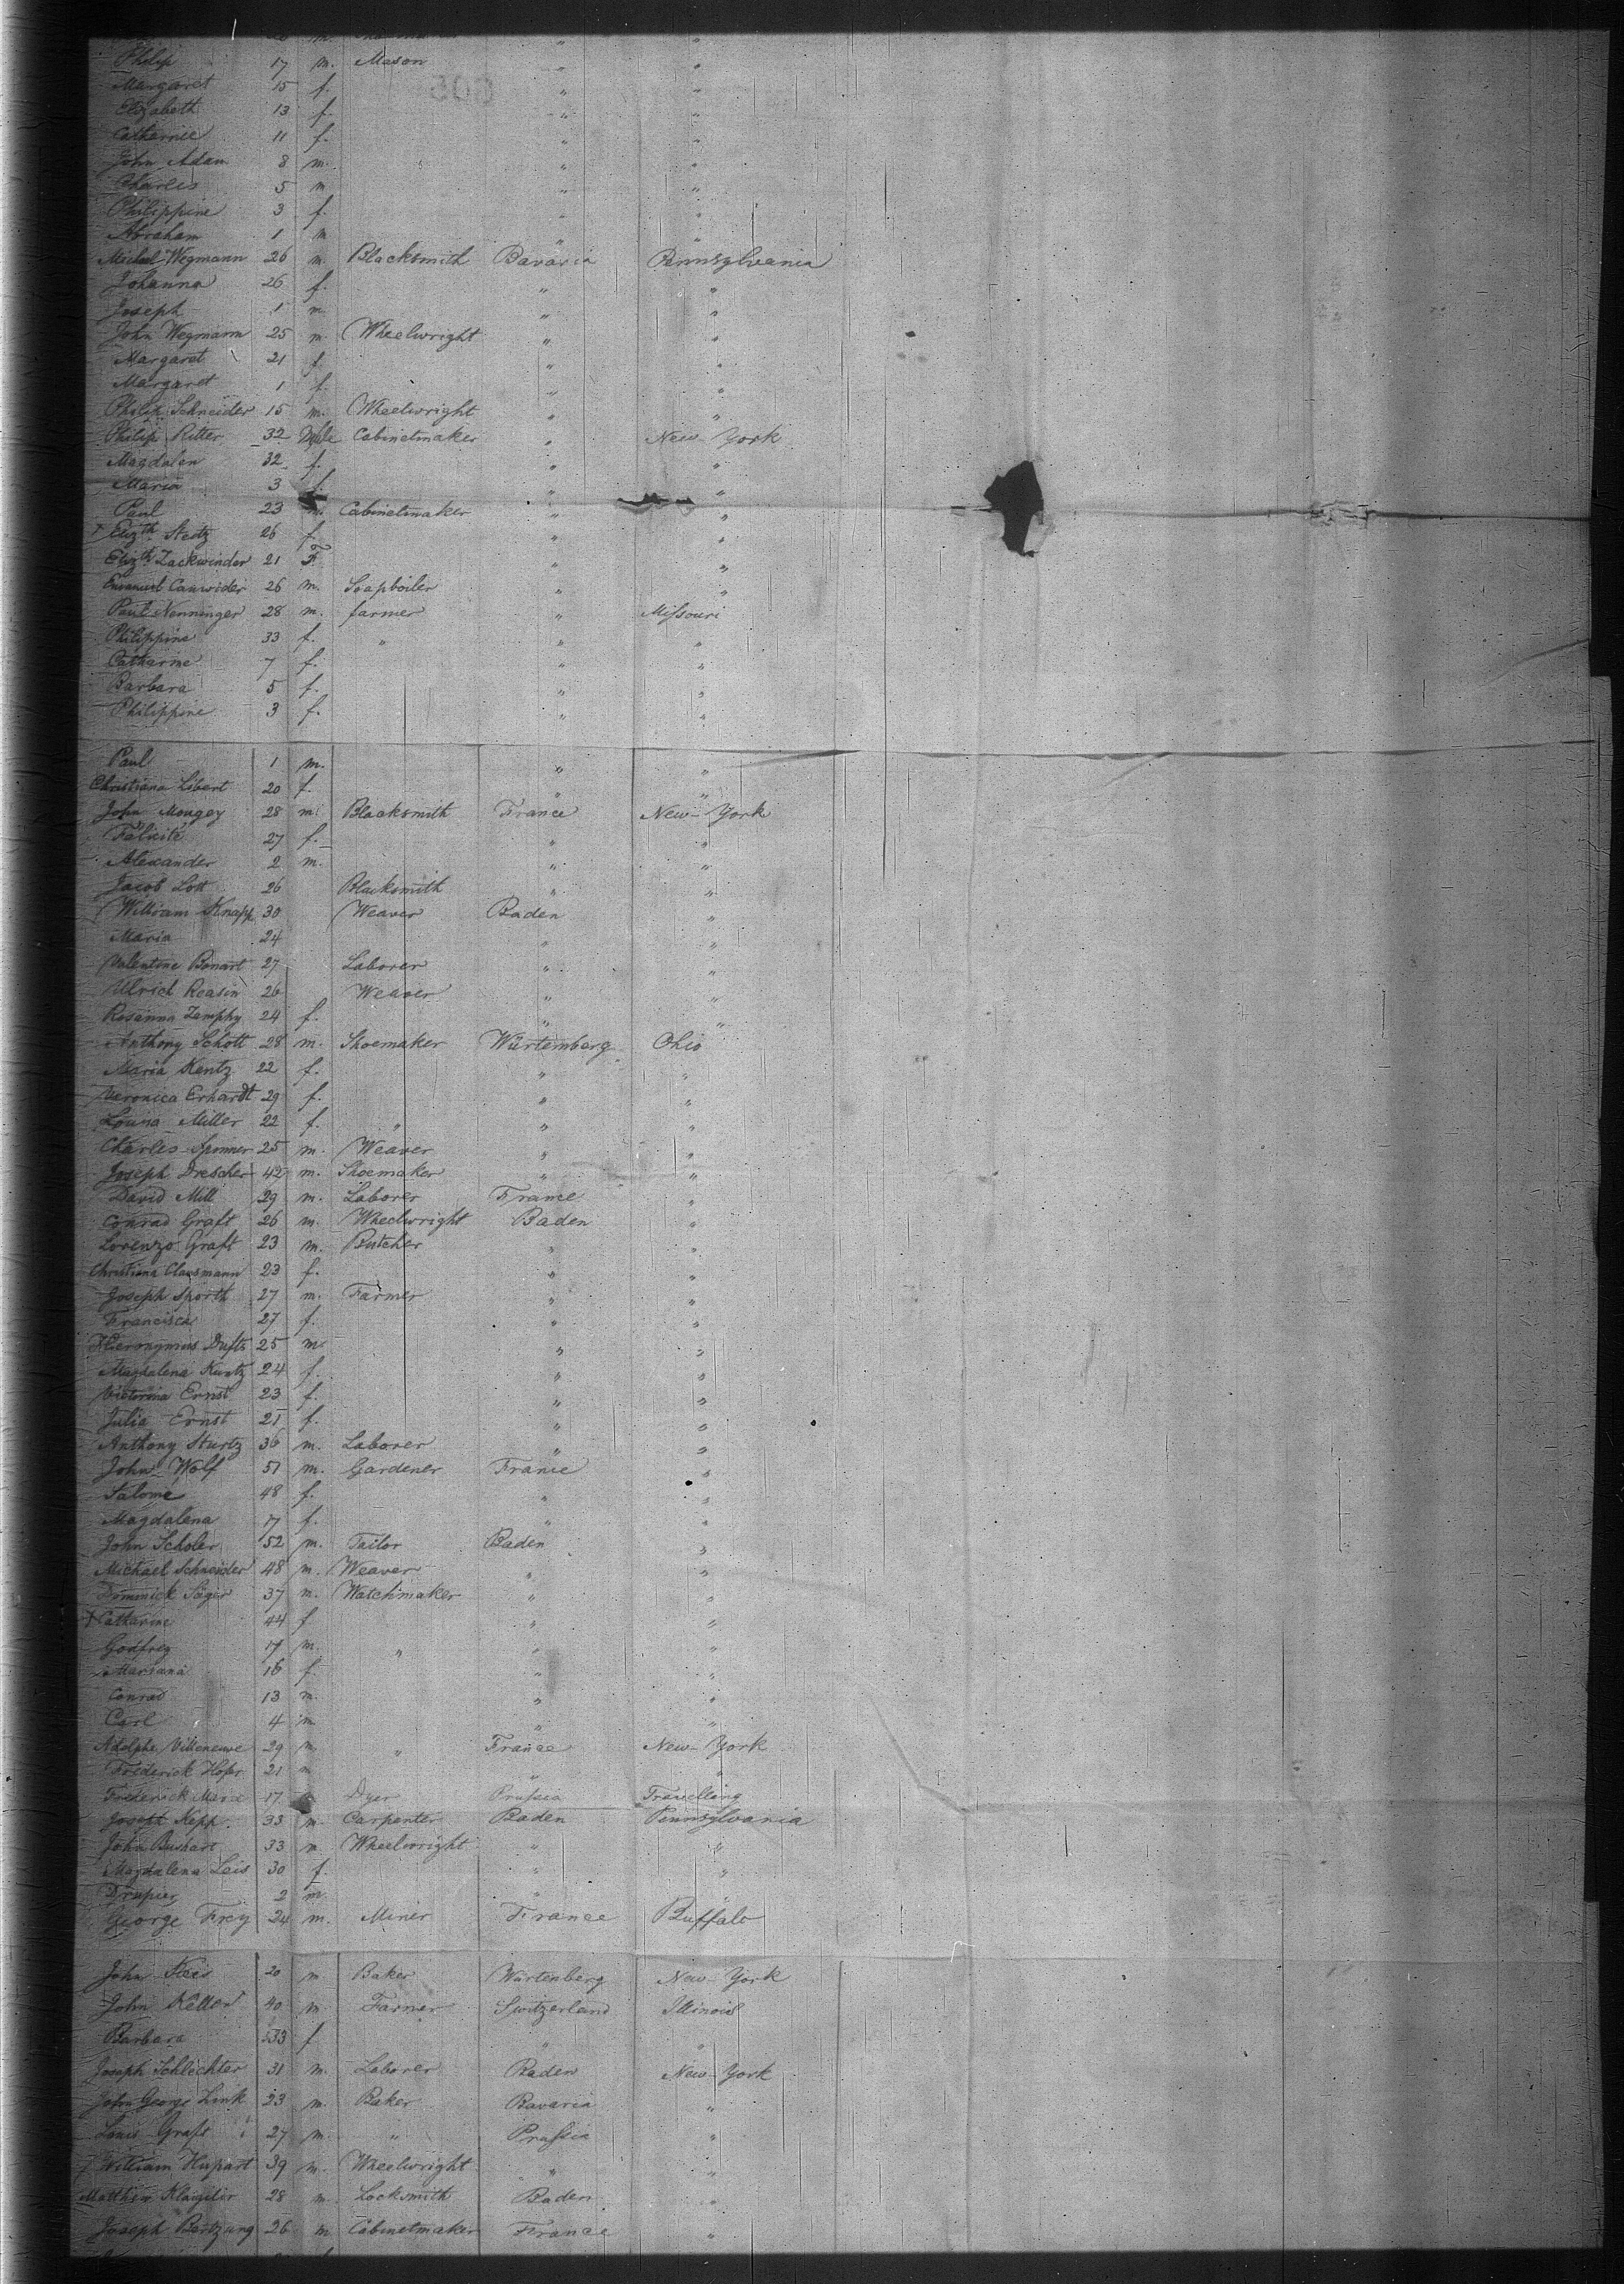 Philip 17 m. Mason " "
Margaret 15 f. " "
Elizabeth 13 f. " "
Catherine 11 f. " "
John Adam 8 m. " "
Charles 5 m " "
Philippine 3 f. " "
Abraham 1 m " "
Michael Wegmann 26 m. Blacksmith Bavaria Pennsylvania
Johanna 26 f. " "
Joseph 1 m. " "
John Wegmann 25 m. Wheelwright " "
Margaret 21 f. " "
Margaret 1 f. " "
Philip Schneider 15 m. Wheelwright " "
Philip Ritter 32 Male Cabinetmaker " New-York
Magdalen 32 f. " "
Maria 3 f. " "
Paul 23 m. Cabinetmaker " "
Elizth. Steitz 26 f " "
Elizth. Zackwinder 21 F " "
Emanuel 26 m. Soapboiler " "
Paul Nenninger 28 m. farmer " Missouri
Philippine 33 f. " " "
Catharine 7 f. " "
Barbara 5 f. " "
Philippine 3 f. " "
Paul 1 m. " "
Christiana Libert 20 f. " "
John Mougey 28 m. Blacksmith France New-York
Felicité 27 f. " "
Alexander 2 m. " "
Jacob Lott 26 Blacksmith " "
William Knapp 30 Weaver Baden "
Maria 24 " "
Valentine Bonart 27 Laborer " "
Ulrich Reasin 26 Weaver " "
Rosanna Zamphy 24 f. " "
Anthony Schott 28 m. Shoemaker Würtemberg Ohio
Maria Kentz 22 f. " "
Veronica Erhardt 29 f. " "
Louisa Miller 22 f. " " "
Charles Sponner 25 m. Weaver " "
Joseph Drescher 42 m. Shoemaker " "
David Mill 29 m. Laborer France "
Conrad Graft 26 m. Wheelwright Baden "
Lorenzo Graft 23 m. Butcher " "
Christiana Clausmann 23 f. " "
Joseph Sporth 27 m. Farmer " "
Francisca 27 f. " "
Hieronymus Dufts 25 m " "
Magdalena Kuntz 24 f. " "
Victorina Ernst 23 f. " "
Julia Ernst 21 f. " "
Anthony Sturtz 36 m. Laborer " "
John Wolf 51 m. Gardener France "
Salome 48 f. " "
Magdalena 17 f. " "
John Scholer 52 m. Tailor Baden "
Michael Schneider 48 m. Weaver " "
Dominick Säger 37 m. Watchmaker " "
Catharine 44 f " "
Godfrey 17 m. " " "
Mariana 16 f. " "
Conrad 13 m. " "
Carl 4 m " "
Adolphe Villeneuve 29 m " France New-York
Frederick 21 m " "
Frederick 17 Dyer Prussia Travelling
Joseph Kepp 33 m. Carpenter Baden Pennsylvania
John Bushart 33 m. Wheelwright " "
Magdalena Leis 30 f. " "
2 m. " "
George Frey 24 m. Miner France Buffalo
John 20 m Baker Würtenberg New-York
John Keller 40 m. Farmer Switzerland Illinois
Barbara 33 f " "
Joseph Schlechter 31 m. Laborer Baden New-York
John George Link 23 m. Baker Bavaria "
Louis Graft 27 m. " Prussia "
William Hupart 39 m. Wheelwright " "
Matthew 28 m. Locksmith Baden "
Joseph Bartzung 26 m Cabinetmaker France "